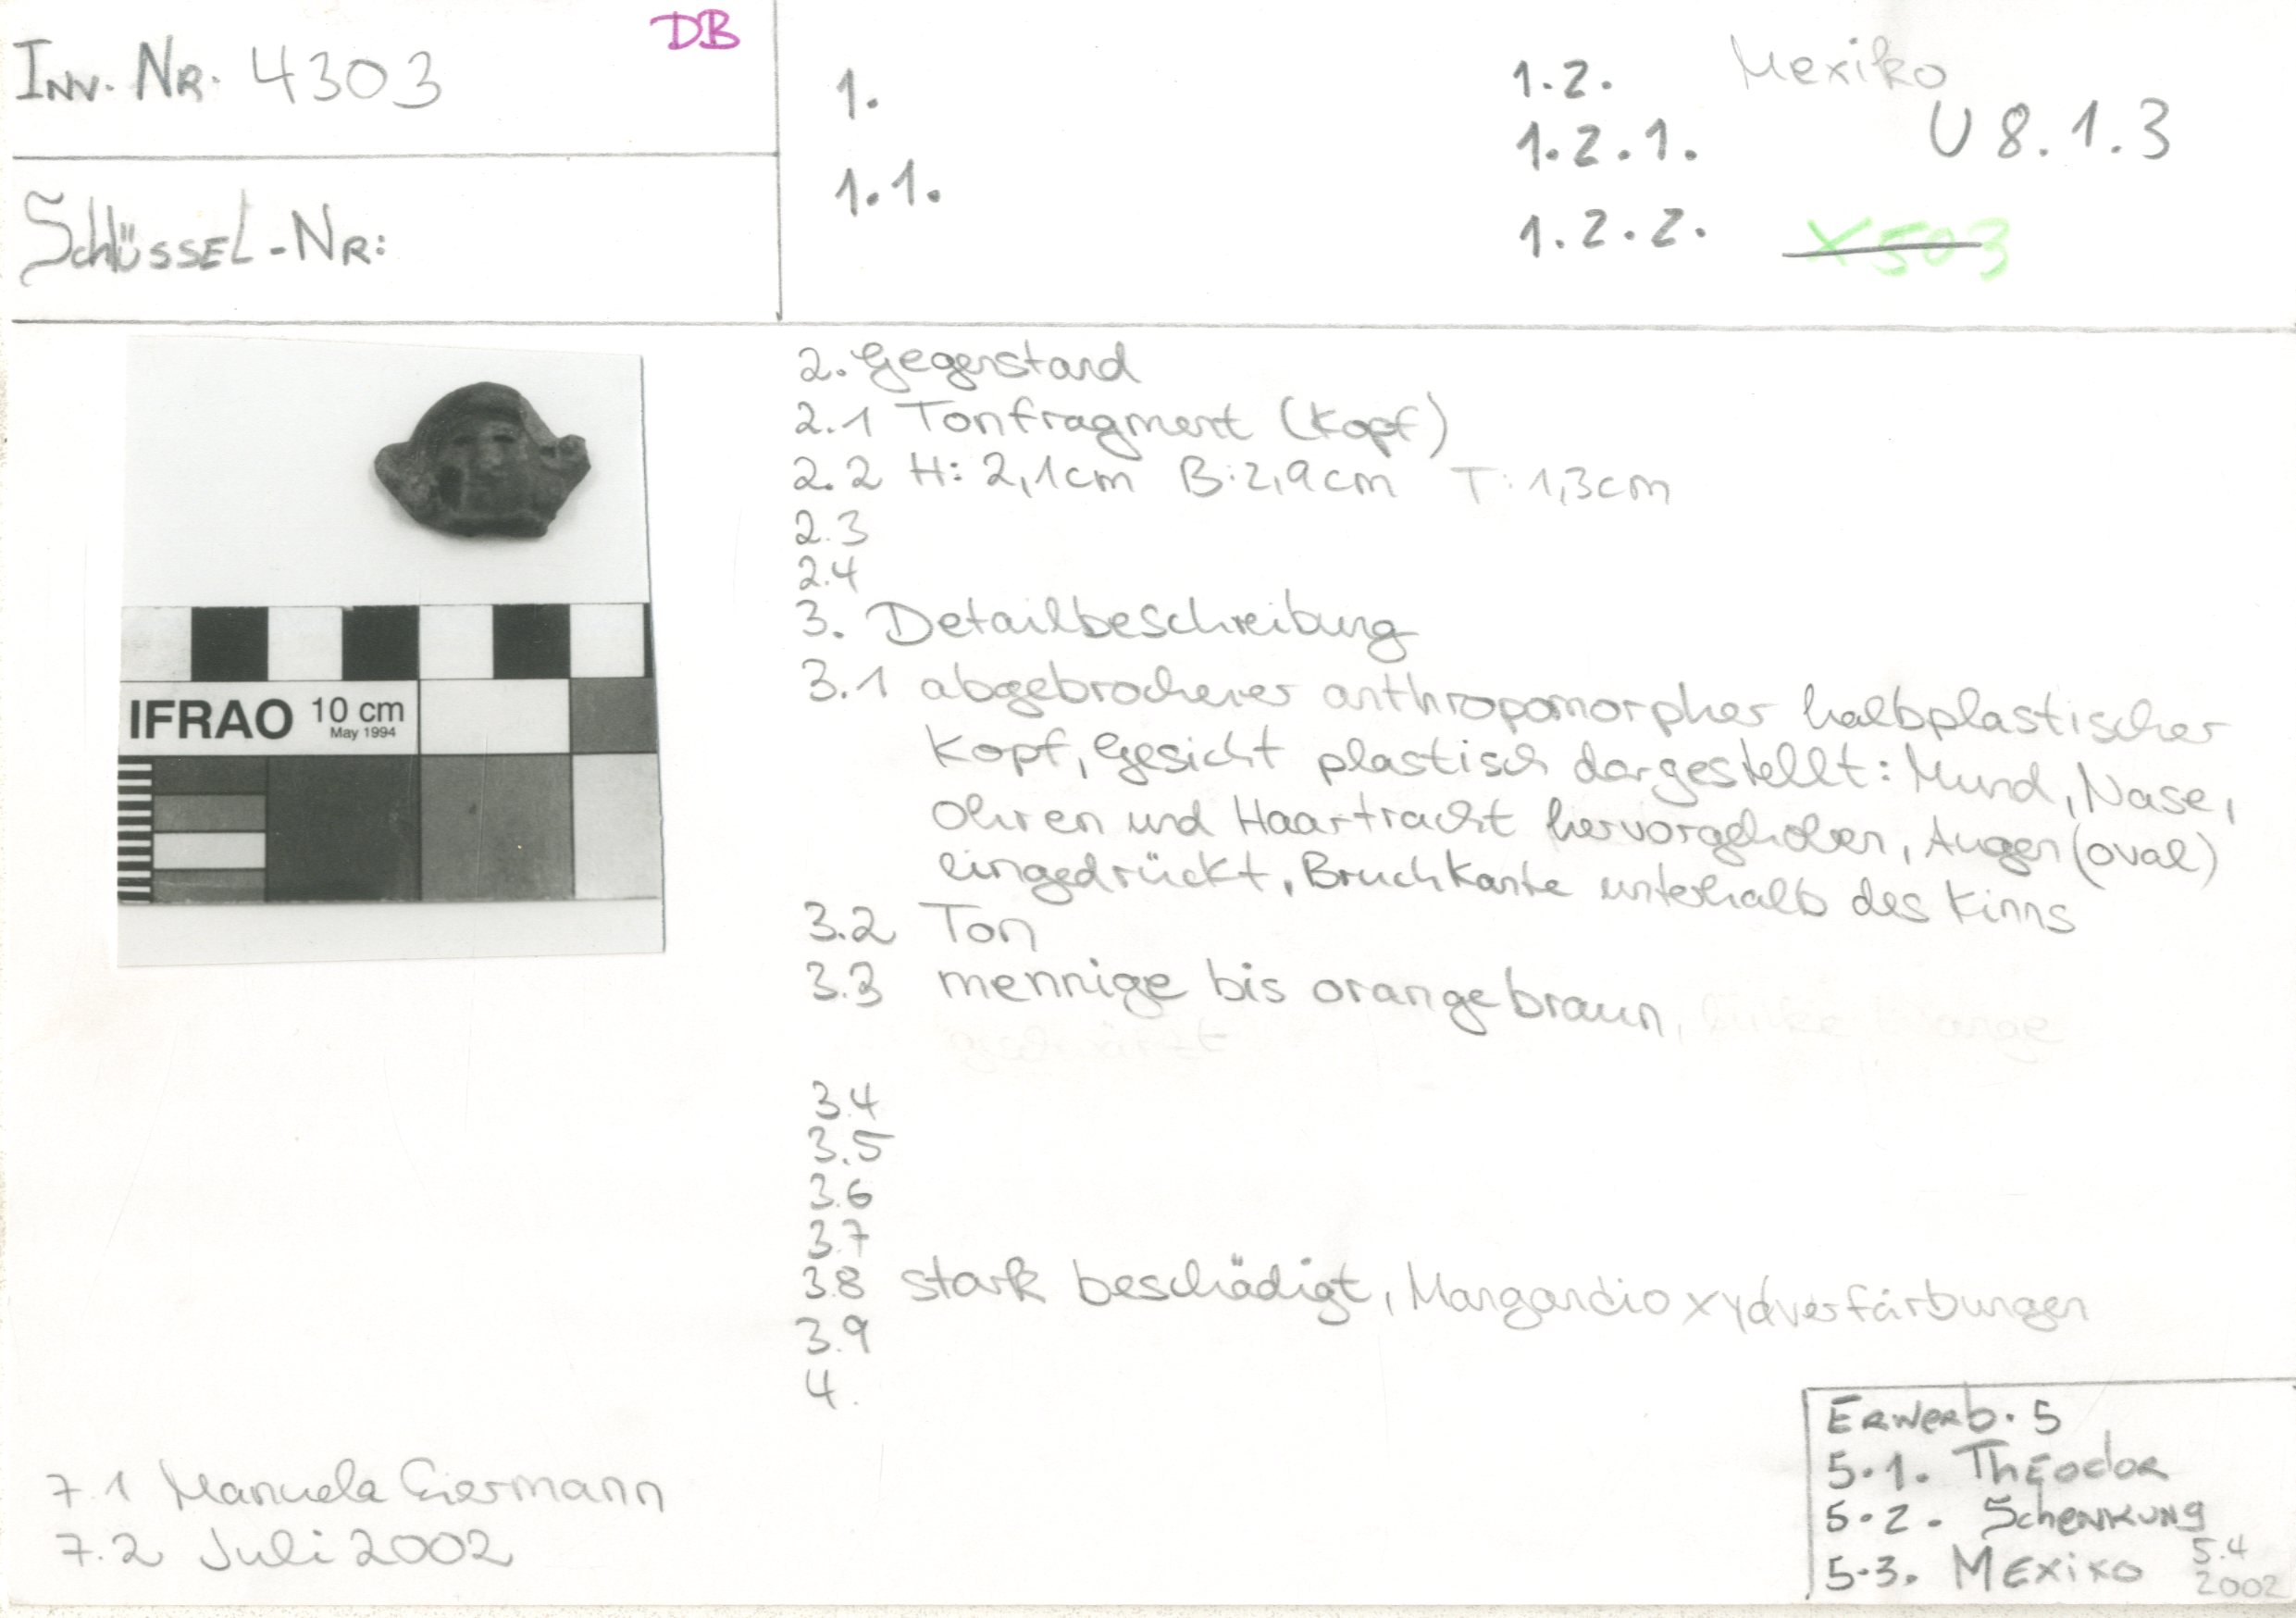 DB
INV. NR. 4303
SCHLÜSSEL-NR:
1.
1.1.
1.2. Mexiko
1.2.1. U 8.1.3
1.2.2. X503
2. Gegenstand
2.1 Tonfragment (Kopf)
2.2 H: 2,1cm B: 2,9cm T: 1,3cm
2.3
2.4
3. Detailbeschreibung
3.1 abgebrochener anthropomorpher halbplastischer
Kopf, Gesicht plastisch dargestellt: Mund, Nase,
Ohren und Haartracht hervorgehoben, Augen (oval)
eingedrückt, Bruchkante unterhalb des Kinns
3.2 Ton
3.3 mennige bis orangebraun,
3.4
3.5
3.6
3.7
3.8 stark beschädigt, Mangandioxydverfärbungen
3.9
4.
IFRAO 10 cm
May 1994
7.1 Manuela
7.2 Juli 2002
ERWERB. 5
5.1. THEODOR
5.2. SCHENKUNG
5.3. MEXIKO
5.4
2002